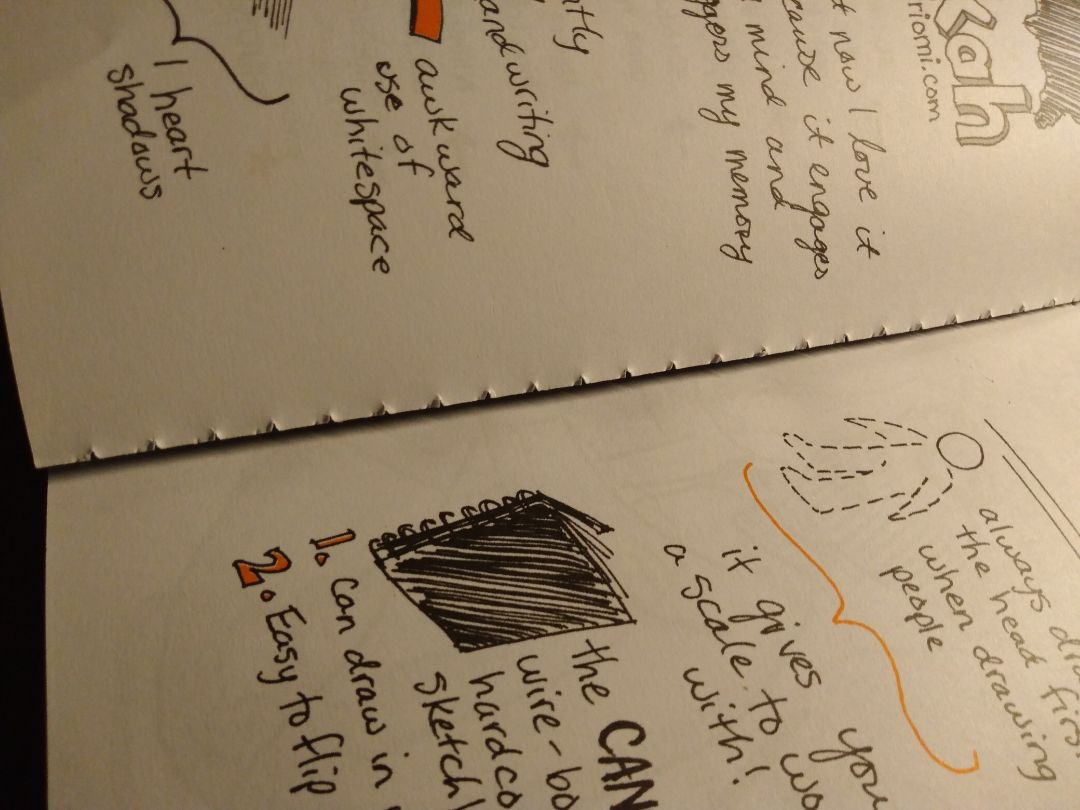 kah
riomi.com
t now I love it
cause it engages
mind and
ggers my memory
ntly
andwriting
awkward
use of
whitespace
I heart
shadows
always dr
the head first
when drawing
people
it gives you
a scale to wo
with!
the CAN
wire-bo
hardco
sketch
1. Can draw in
2. Easy to flip